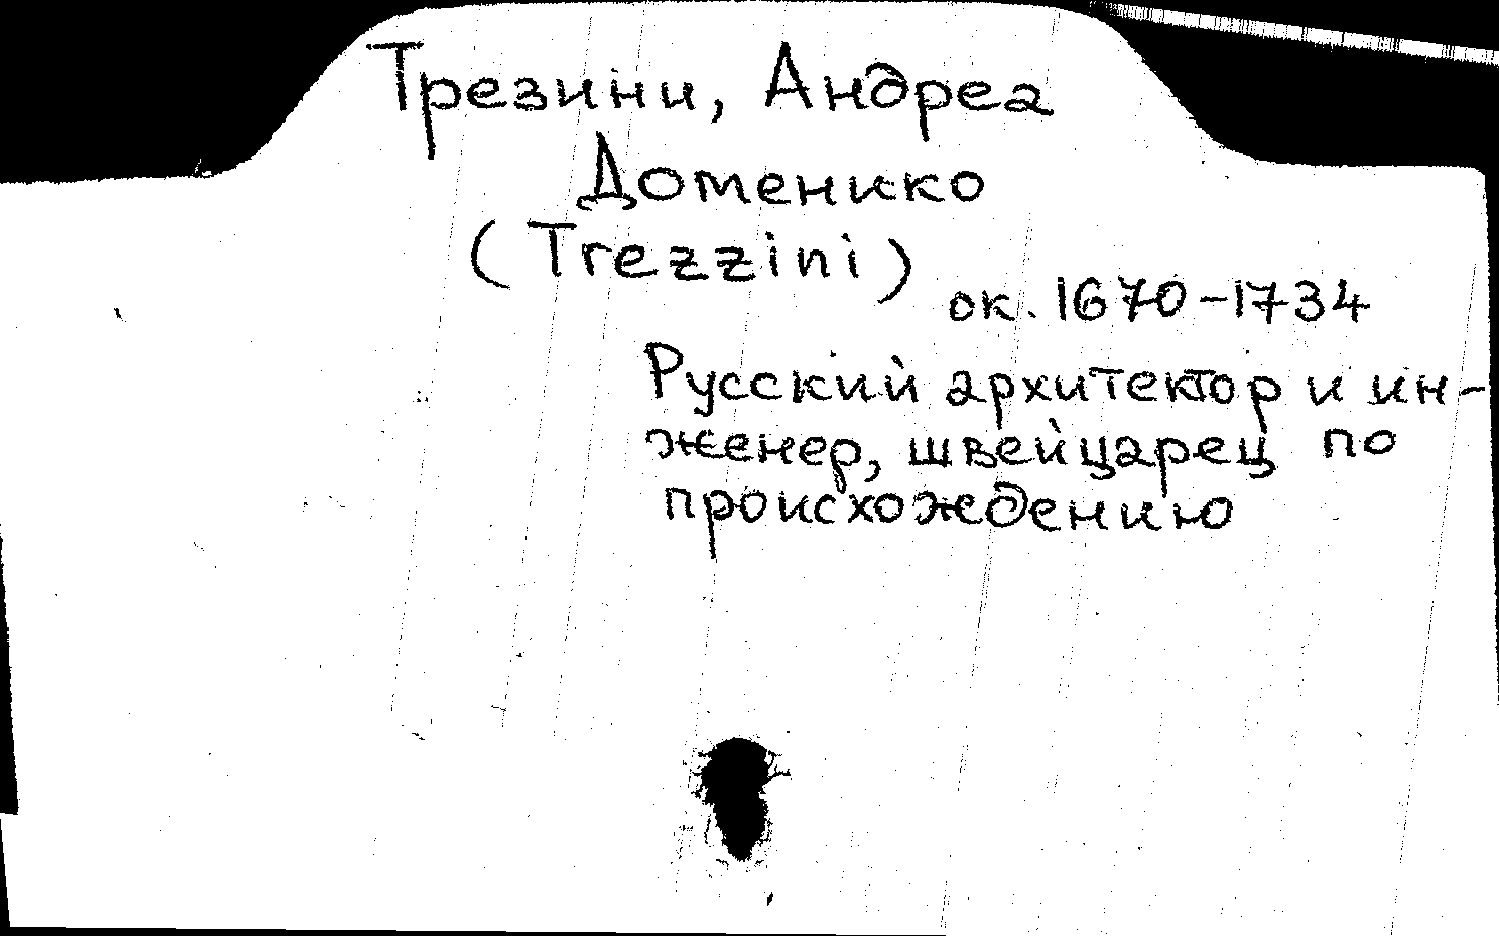 Трезини, Андреа
Доменико
(Trezzini)
ок. 1670-1734
Русский архитектор и ин-
женер, швейцарец по
происхождению